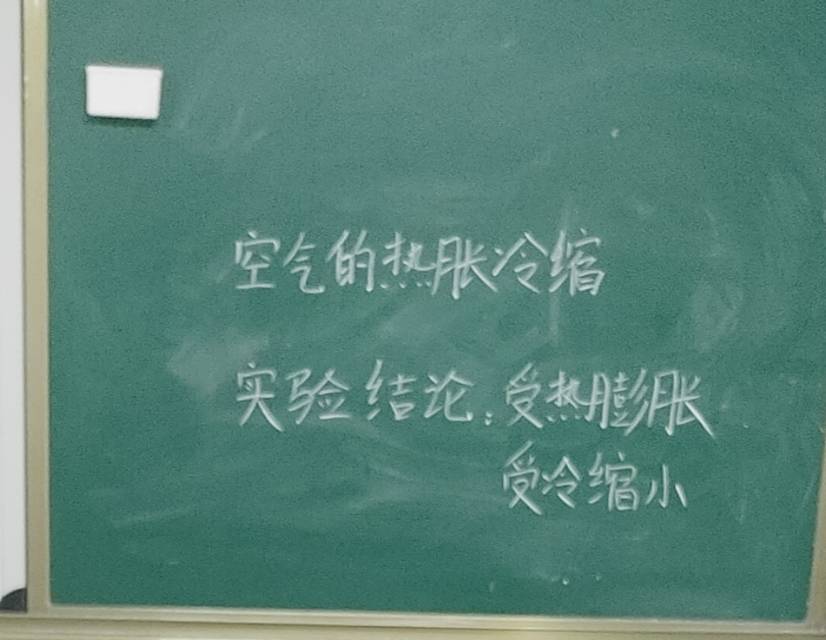 空气的热胀冷缩
实验结论:受热膨胀
受冷缩小